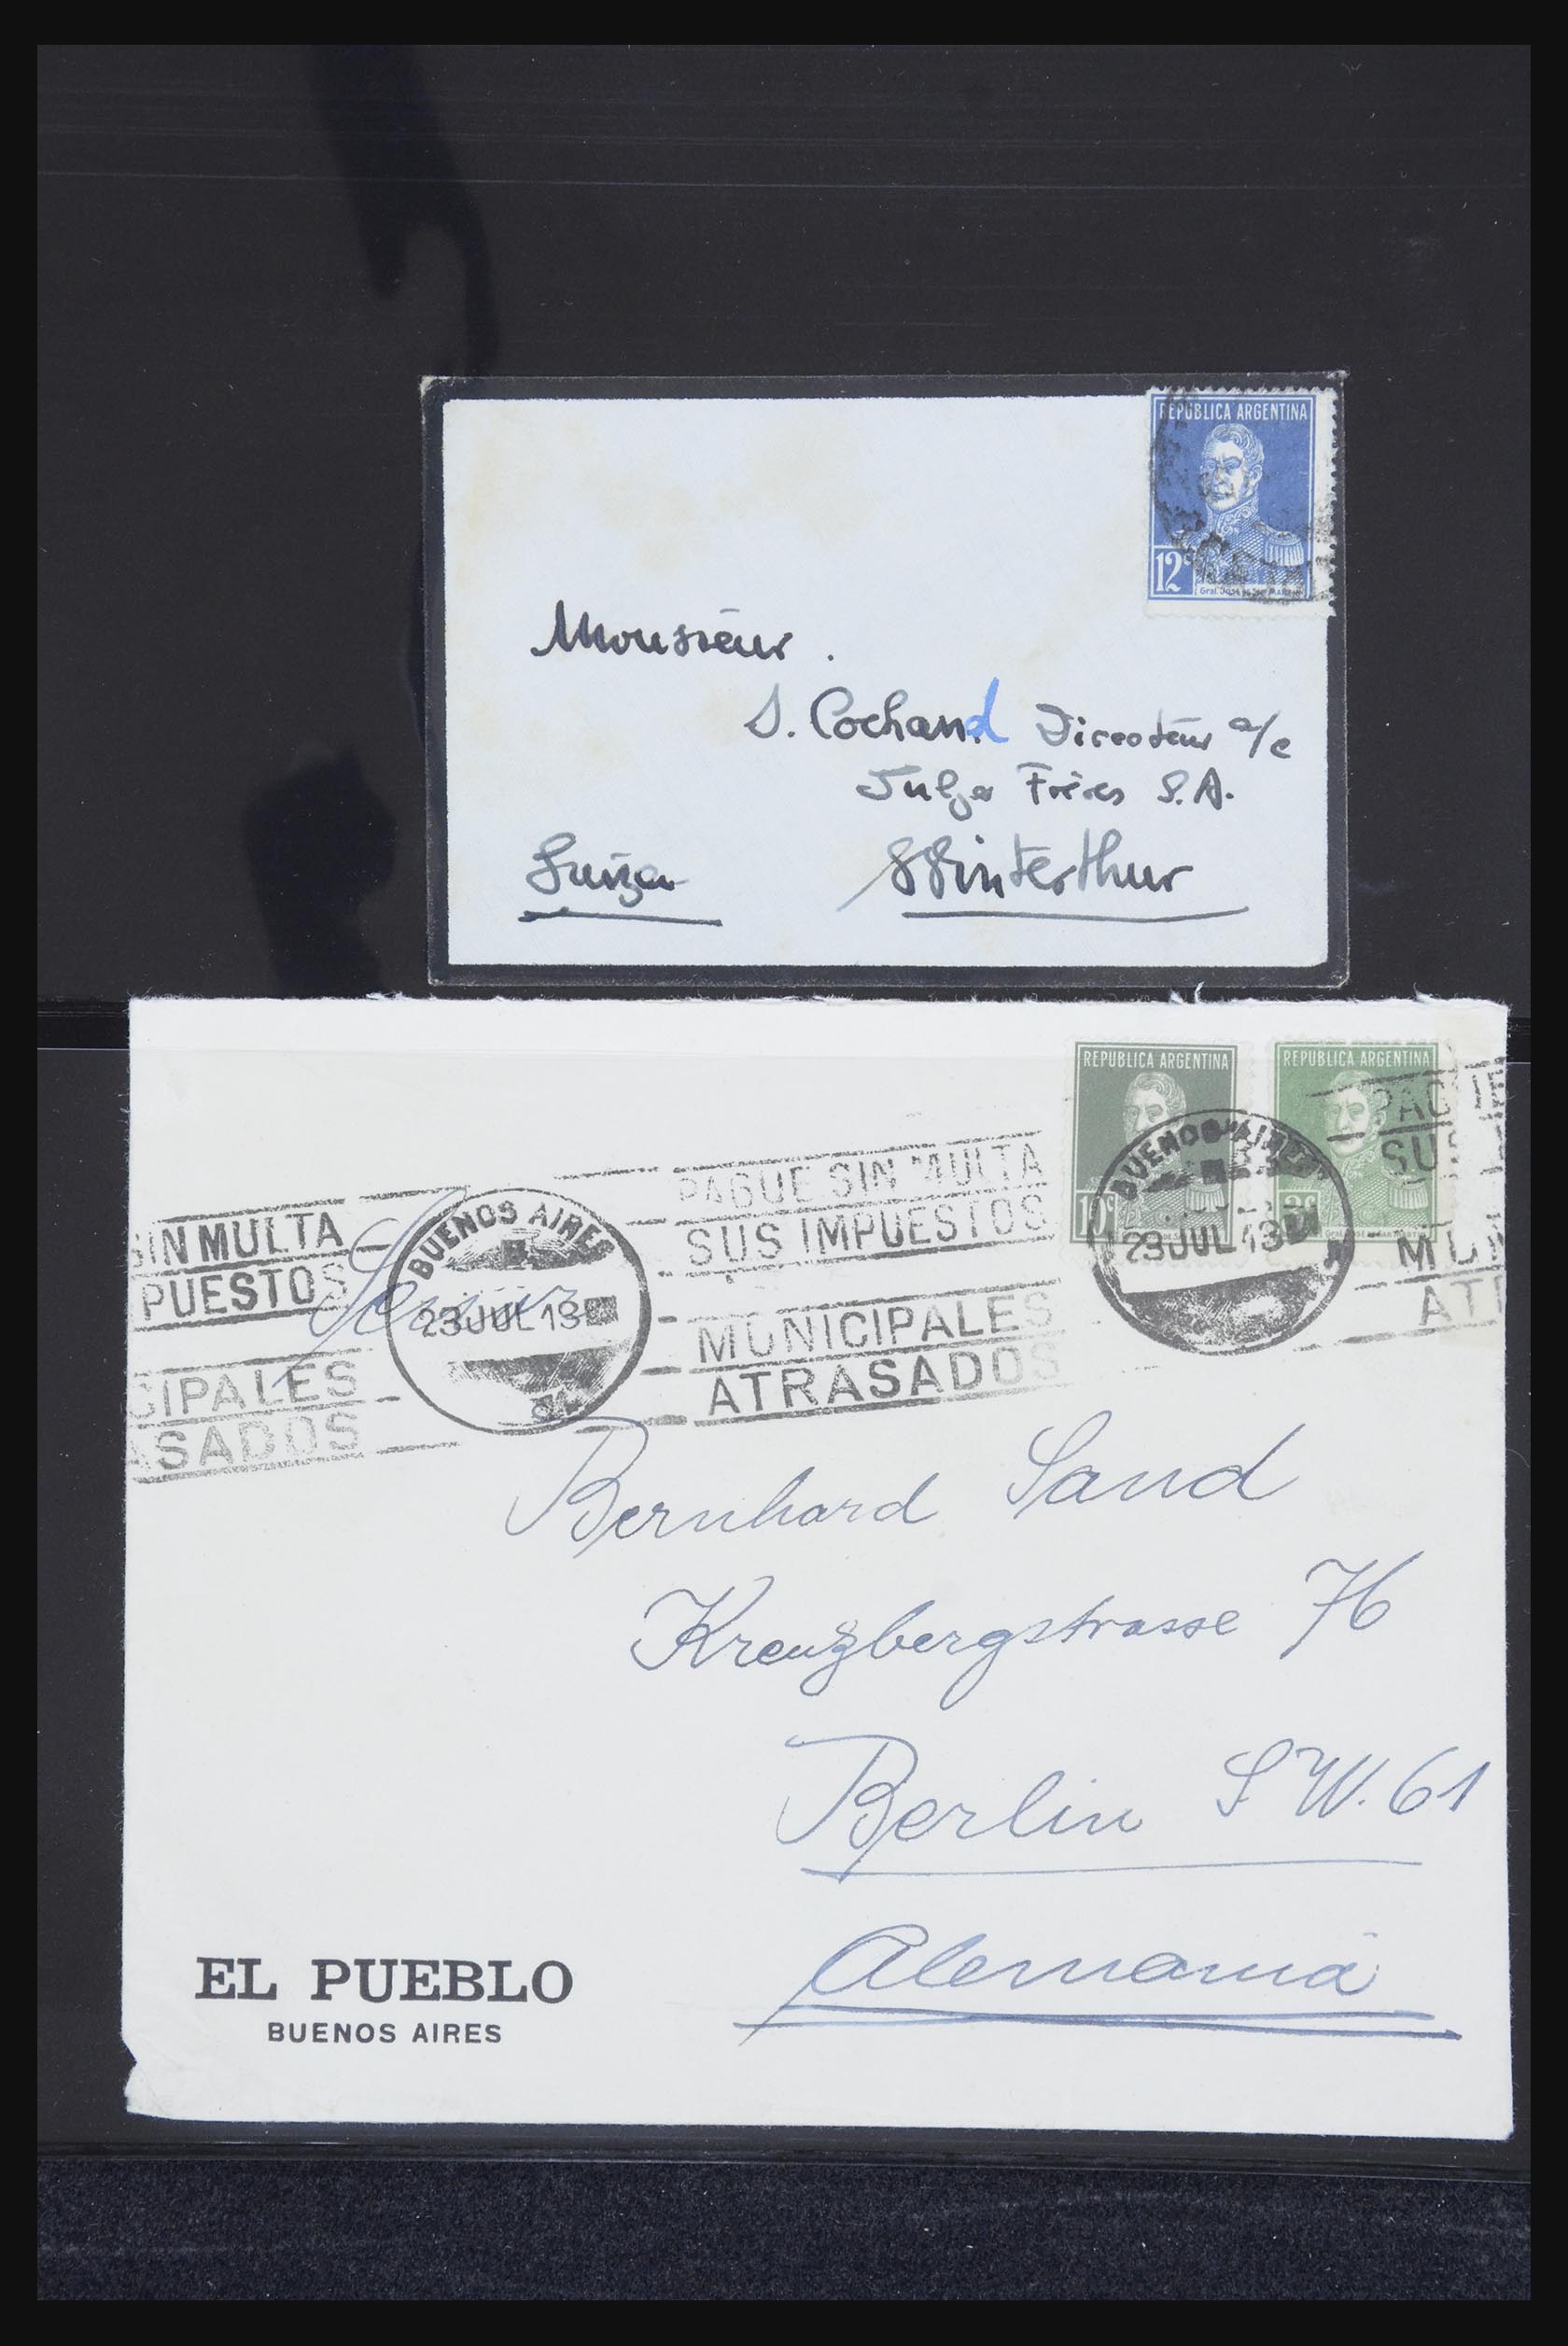 REPUBLICA ARGENTINA
12c
Monsieur.
S. Cochand Directeur a/c
Sulzer Frères S.A.
Suiza Winterthur
REPUBLICA ARGENTINA REPUBLICA ARGENTINA
10c 2c
PAGUE SIN MULTA
SUS IMPUESTOS
MUNICIPALES
ATRASADOS
BUENOS AIRES
23 JUL 13
BUENOS AIRES
23 JUL 13
SIN MULTA
PUESTOS
CIPALES
ASADOS
PAGUE
SUS
MUNI
AT
Senor
Bernhard Sand
Kreuzbergstrasse 76
Berlin S.W. 61
Alemania
EL PUEBLO
BUENOS AIRES